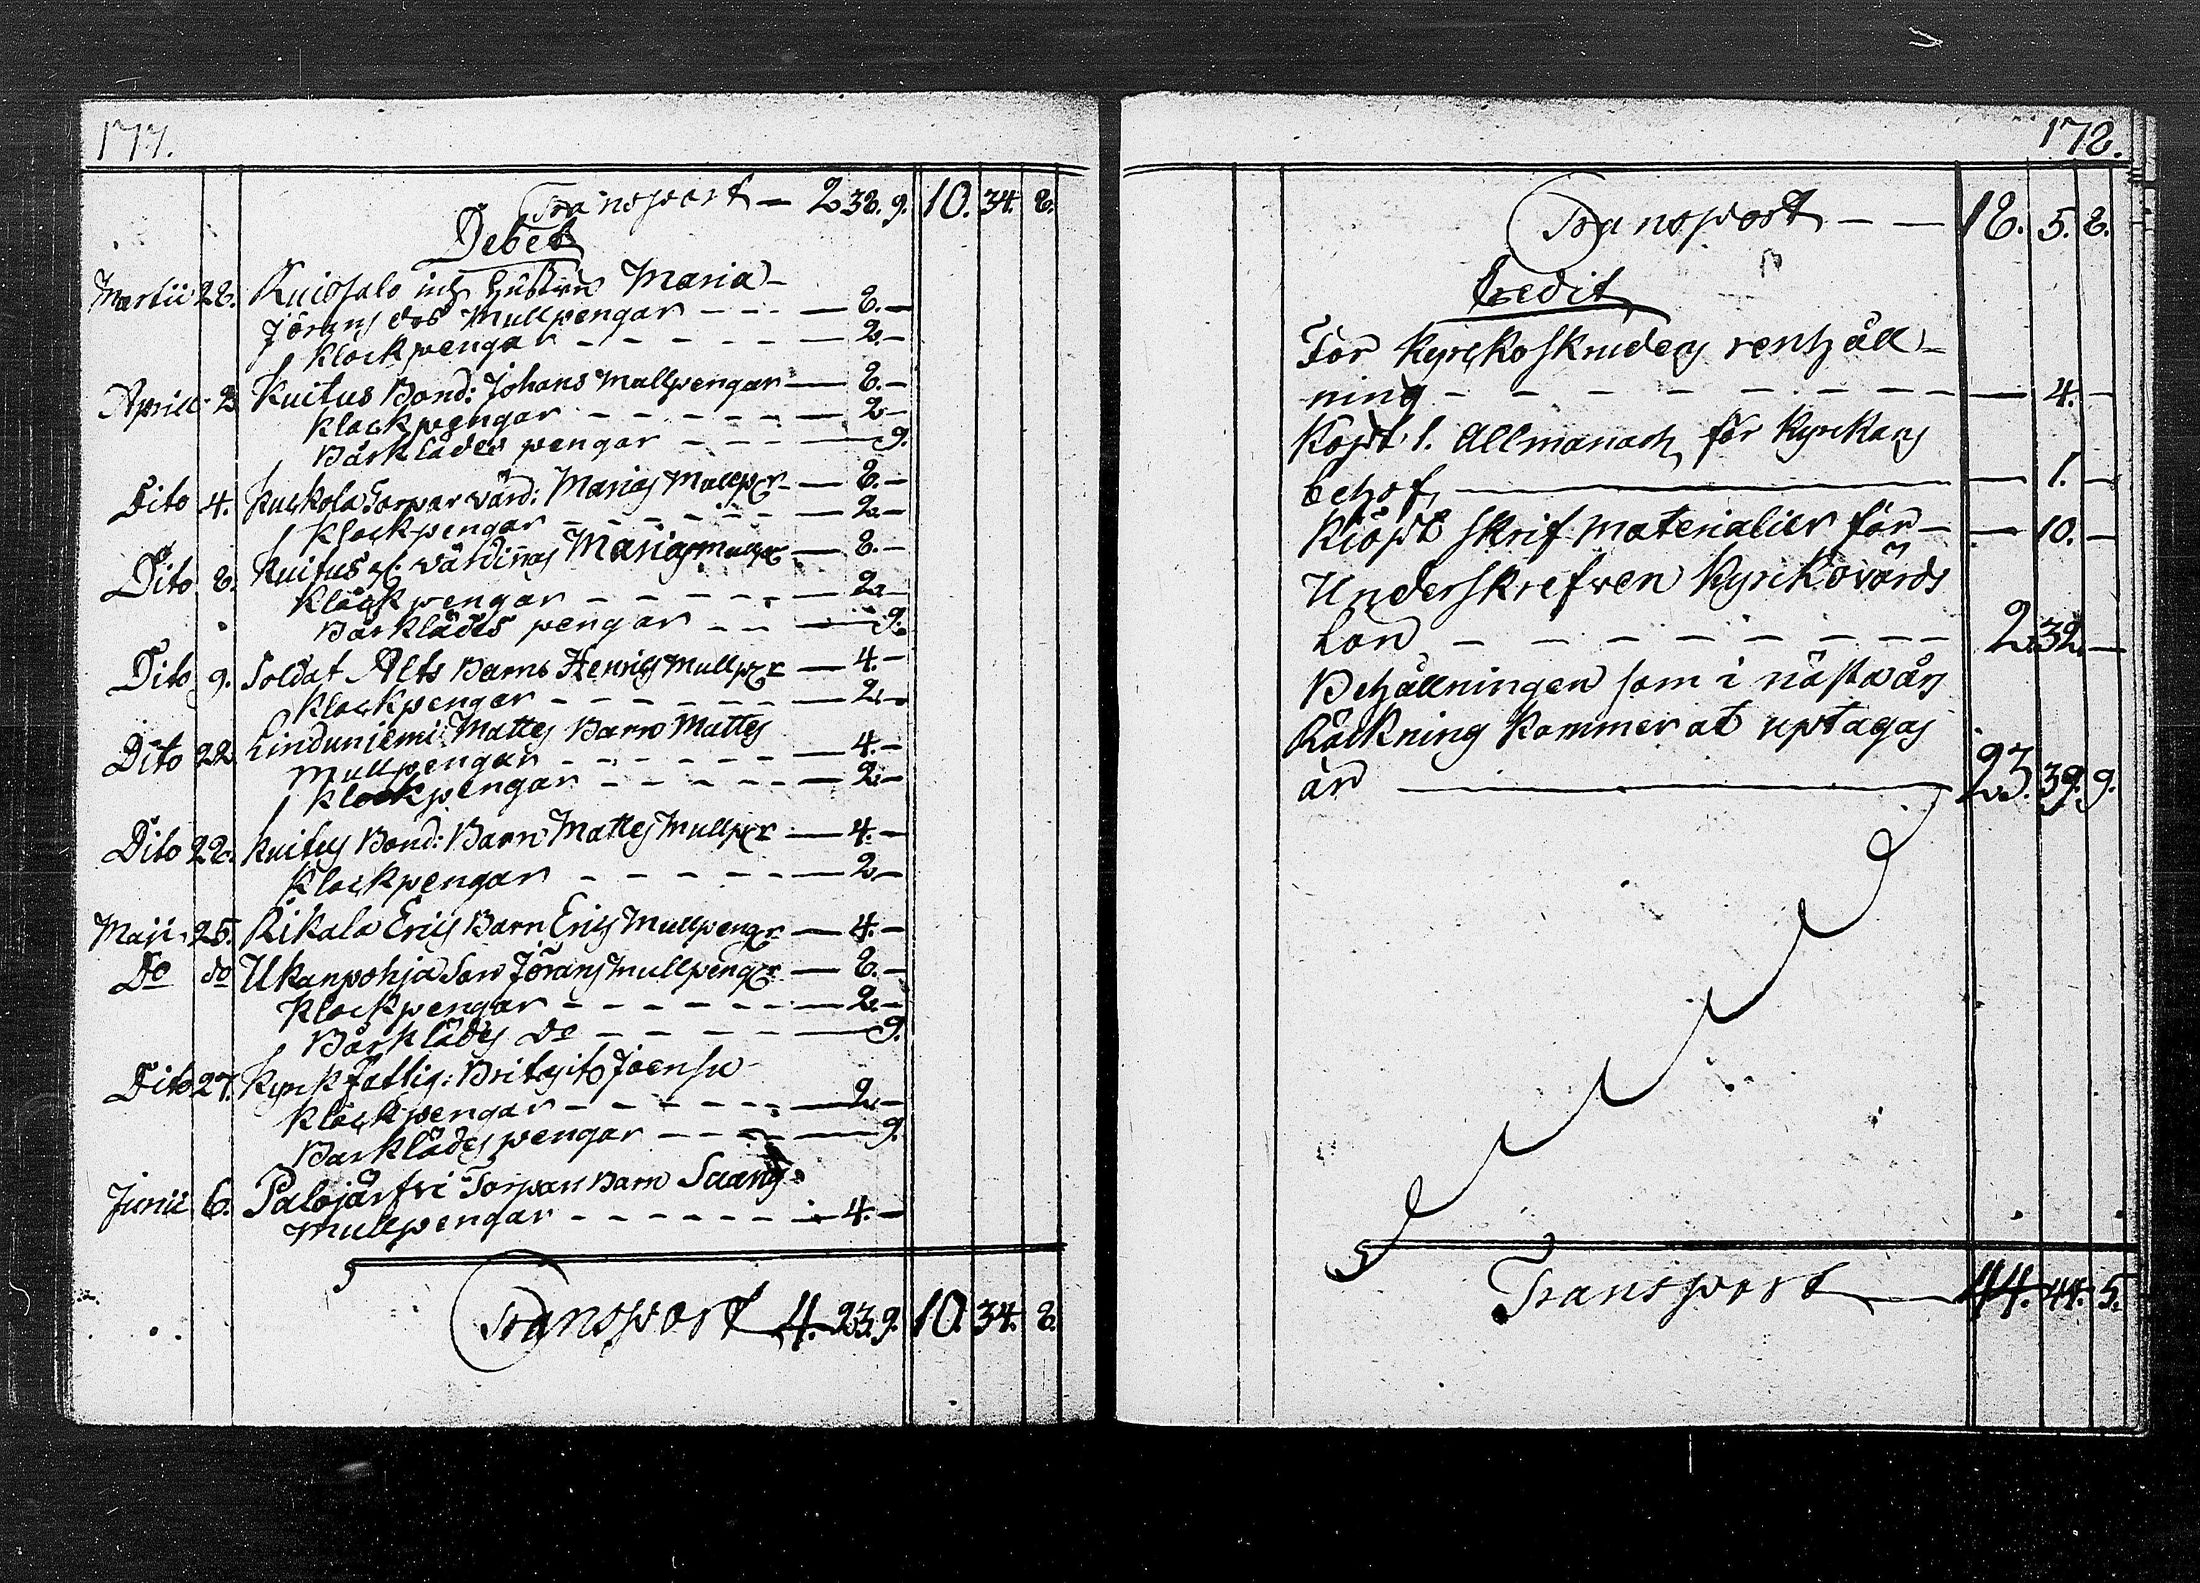 177.
Transport — 2 38. 9. 10. 34. 8.
Debet
Martii 28. Kuiosalo inh hustru Maria
Jörans dos Mullpengar — 8. —
Klockpengar — 2. —
Aprill 2 Kuitus Bond: Johans Mullpengar — 8. —
Klockpengar — 2 —
Bårklädes pengar — 9.
Dito 4. Torpar värd: Marias Mullpgr — 8. —
Klockpengar — 2 —
Dito 8. Kuitus gl. värdinas Marias Mullpr — 8. —
Klockpengar — 2 —
Bårklädes pengar — 9.
Dito 9. Soldat Alts Barns Henrics Mullpgr — 4. —
Klockpengar — 2 —
Dito 22 Linduniemi Mattes Barn Mattes
Mullpengar — 4. —
Klockpengar — 2 —
Dito 28. Kuitus Bond: Barn Mattes Mullpgr — 4. —
Klockpengar — 2 —
Maji 25. Rikala Erics Barn Erics Mullpengr — 4. —
Do do Ukanpohja Son Jörans Mullpengr — 8. —
Klockpengar — 2 —
Bårklädes Do — 9.
Dito 27. Kyrkfattig: Brita Joensu
Klockpengar — 2 —
Barklädes pengar — 9.
Junii 6. Palojärfvi Torpars Barn
Mullpengar — 4. —
Transport 4. 23. 9. 10. 34. 8.
178.
Transport — — 18. 5. 8.
Credit
For Kyrckoskrudens renhåll
ning — — 4. —
Köpt 1. Allmanach för Kyrckans
behof — — 1. —
Kiöpt skrif materialier för — — 10. —
Underskrefven Kyrckovärds
Lön — 2. 32. —
Behållningen som i nästa års
Räckning kommer at uptagas
är — 23. 39. 9.
Transport — 44. 44. 5.